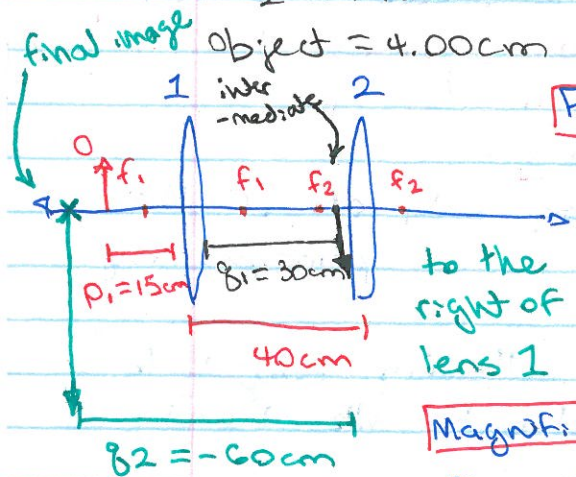 final image
object = 4.00cm
1
inter
-mediate
2
O
f₁
f₁
f₂
f₂
p₁=15cm
q₁=30cm
40cm
q2=-60cm
to the
right of
lens 1
Magnifi